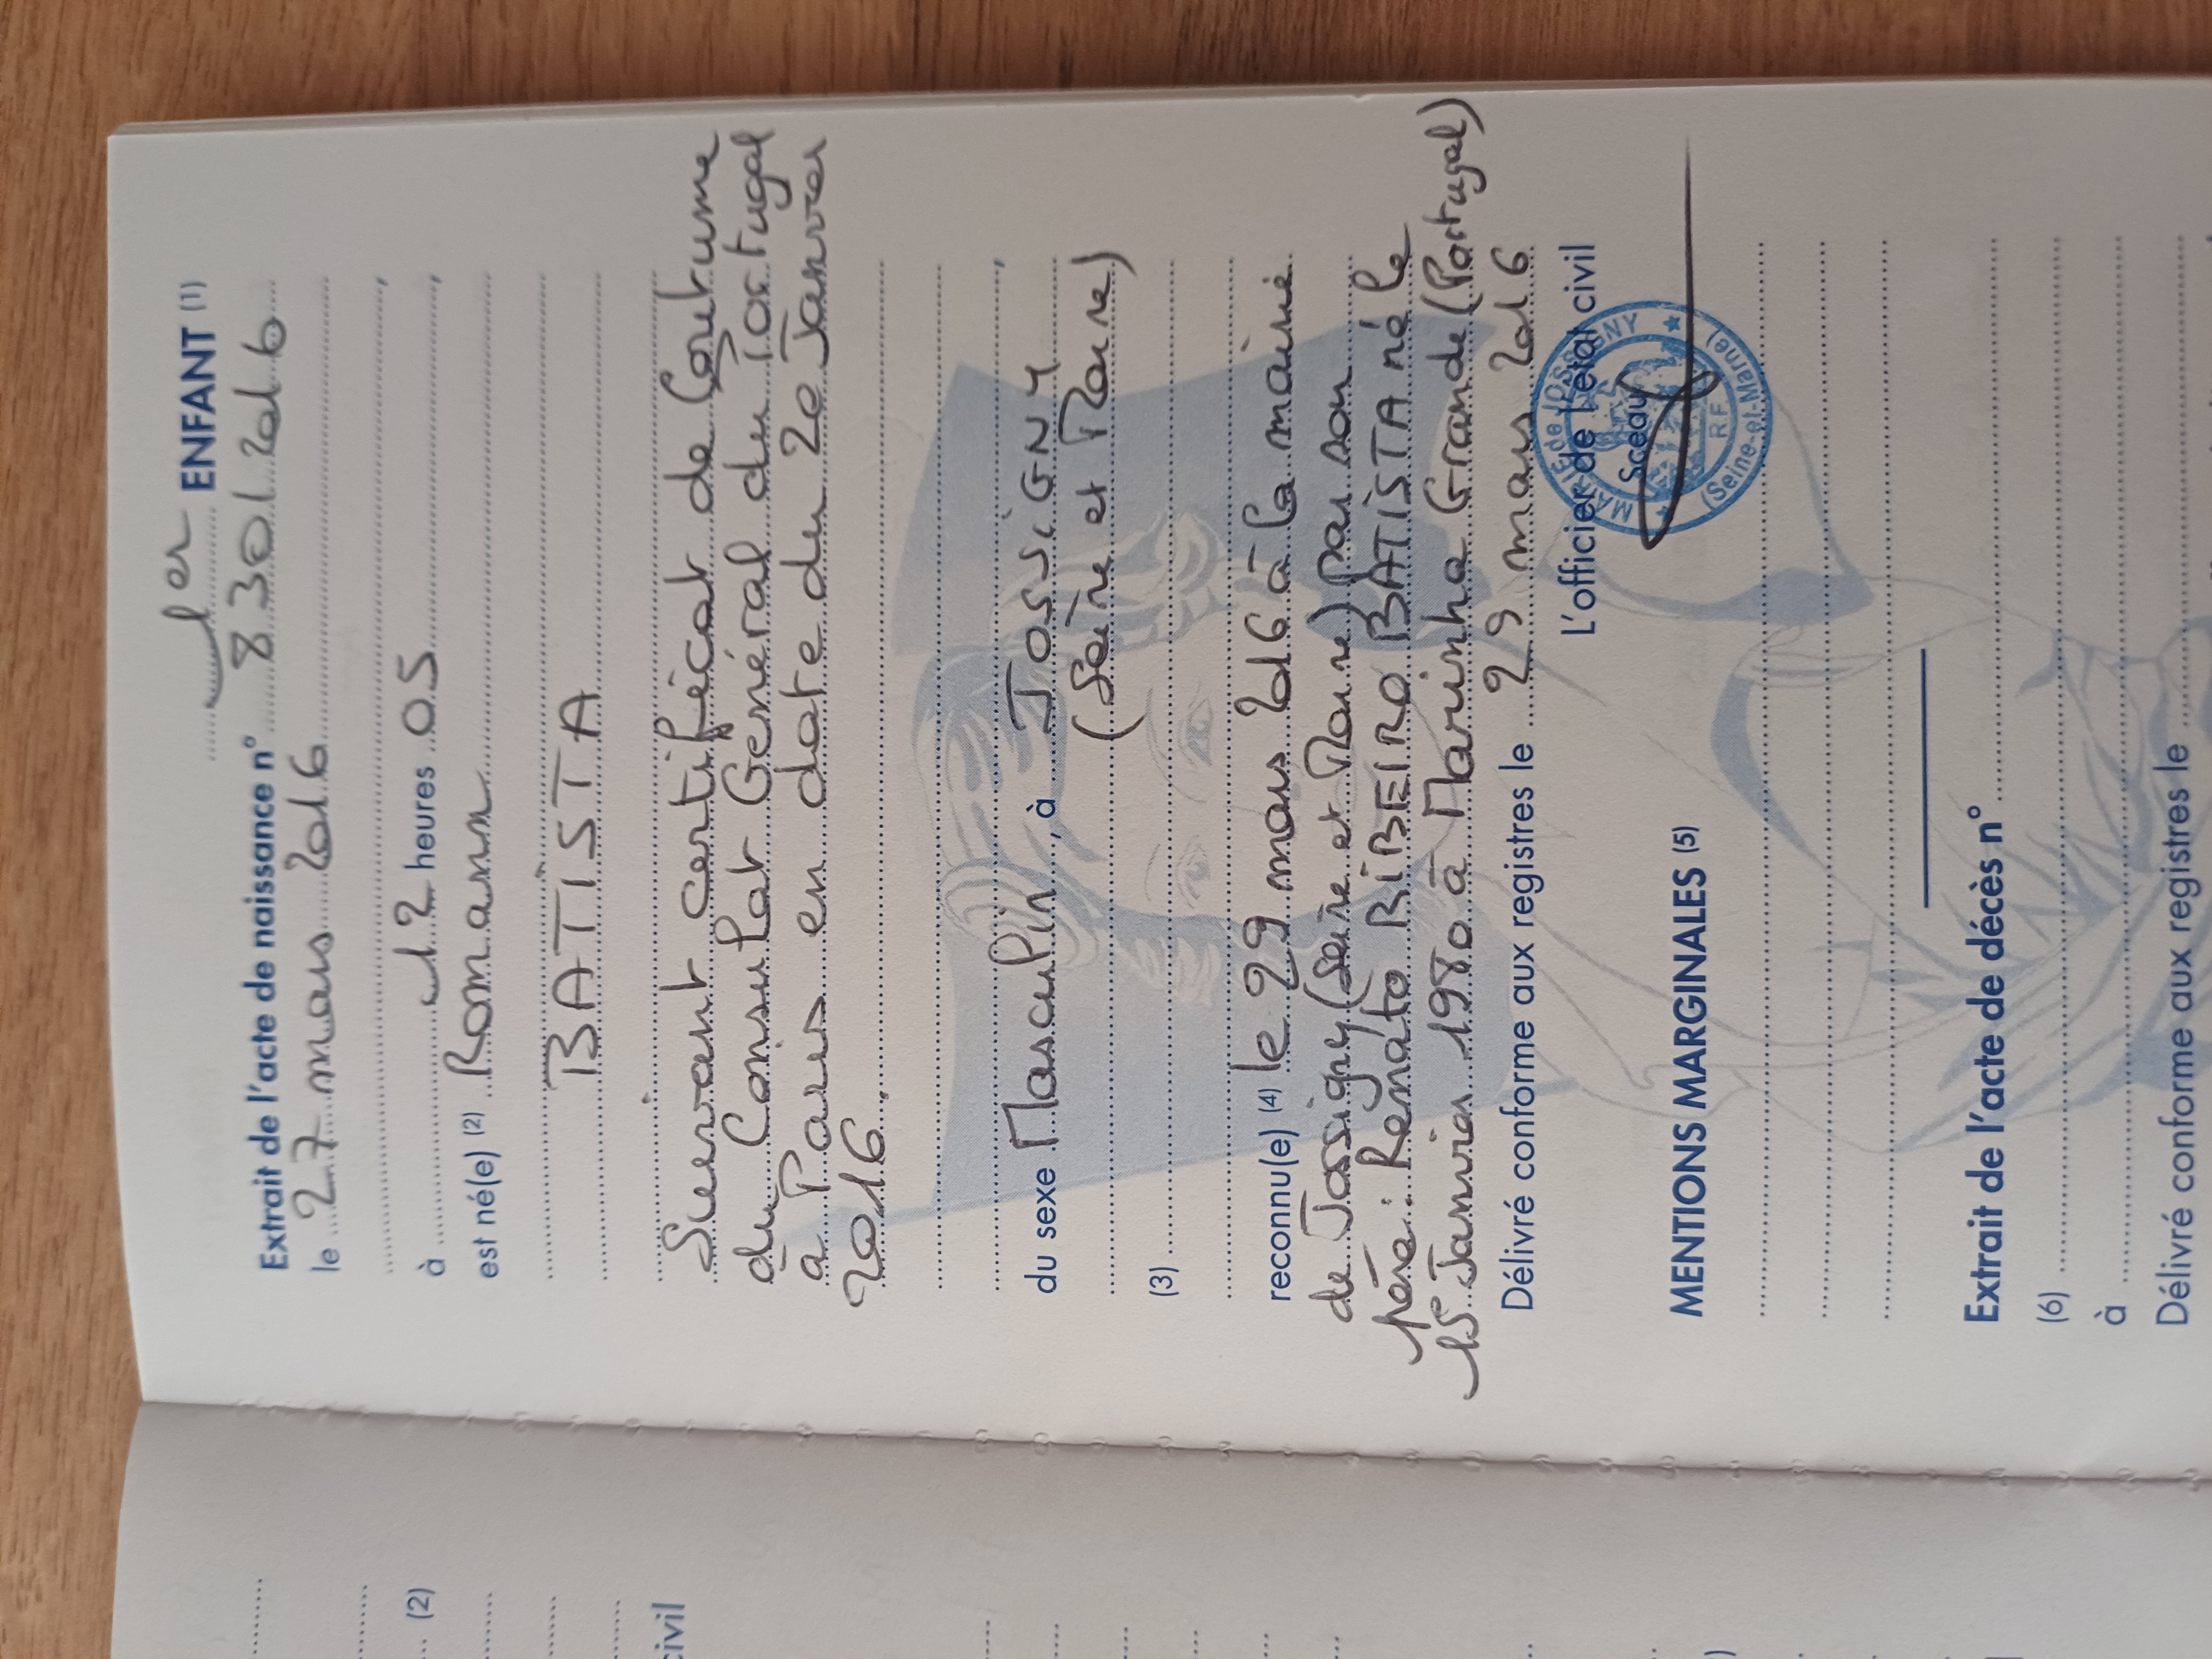 1er ENFANT (1)
Extrait de l'acte de naissance n° 8 301.2016
le 27 mars 2016
à 12 heures 05,
est né(e) (2) Romann
BATISTA
Suivant certificat de Coutume
du Consulat Général du Portugal
à Paris en date du 20 Janvier
2016.
du sexe Masculin, à JOSSIGNY,
(Seine et Marne)
(3)
reconnu(e) (4) le 29 mars 2016 à la mairie
de Jossigny (Seine et Marne) par son
père : Renato RIBEIRO BATISTA né le
15 Janvier 1980 à Marinha Grande (Portugal)
Délivré conforme aux registres le 29 mars 2016
L'officier de l'état civil
Sceau
MAIRIE de JOSSIGNY
R F
(Seine-et-Marne)
MENTIONS MARGINALES (5)
Extrait de l'acte de décès n°
(6)
à
Délivré conforme aux registres le
(2)
civil